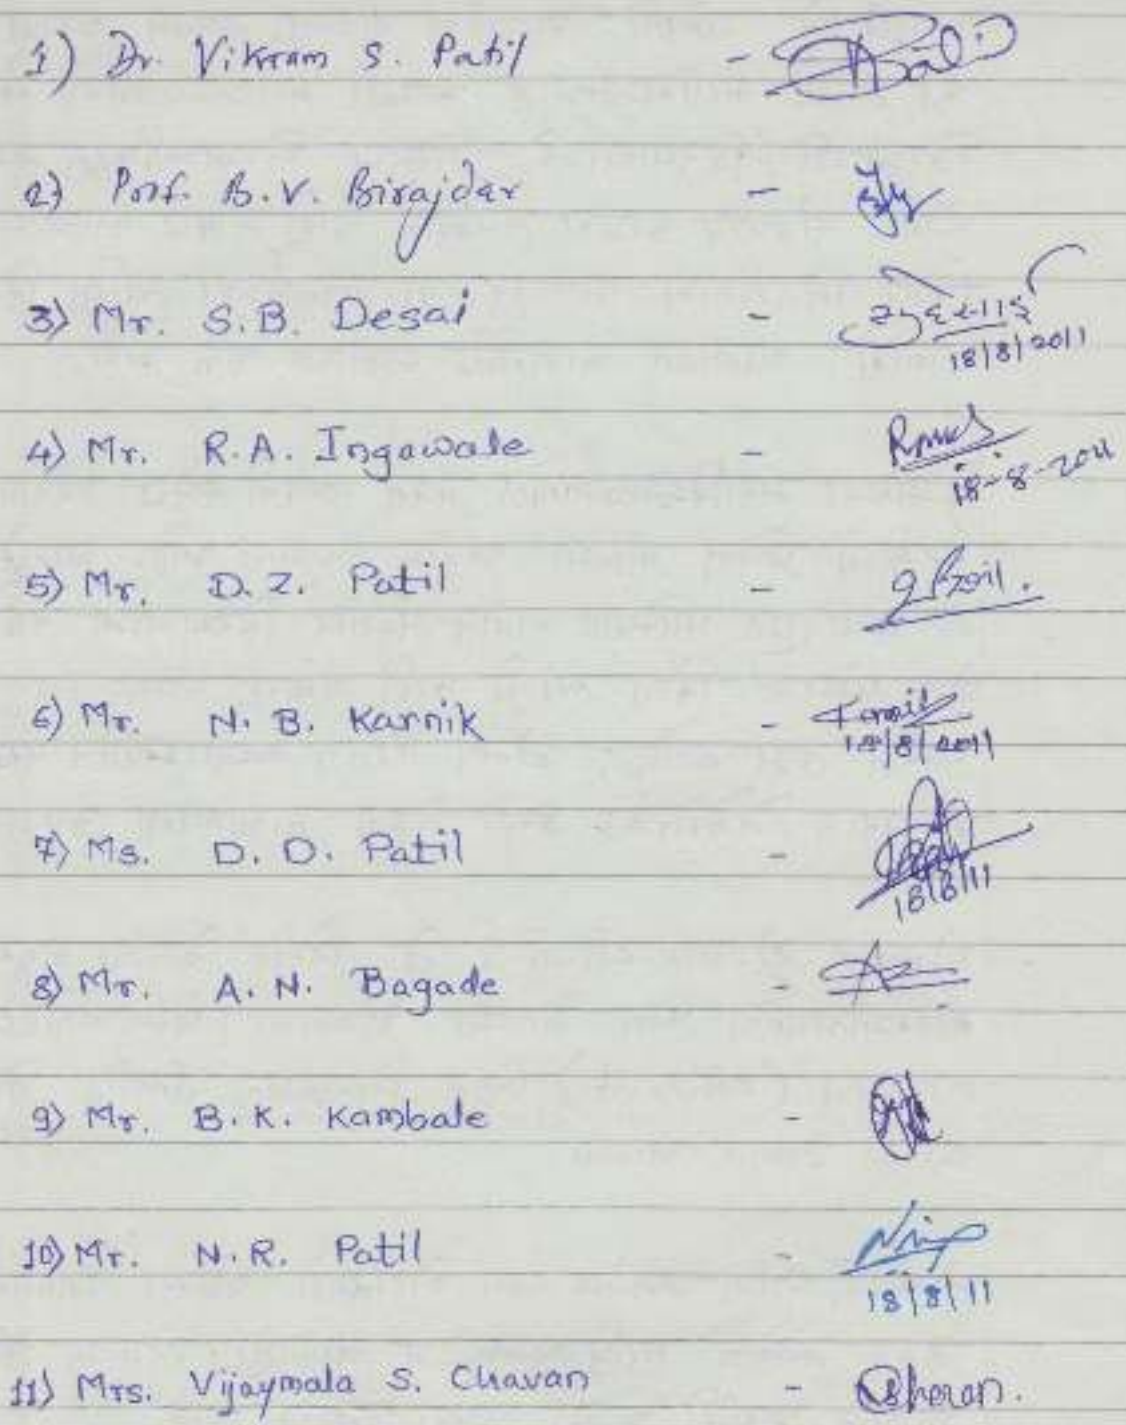 1) Dr. Vikram S. Patil -
2) Prof. B. V. Birajdar -
3) Mr. S.B. Desai -
18/8/2011
4) Mr. R.A. Ingawale -
18-8-2011
5) Mr. D.Z. Patil -
6) Mr. N.B. Karnik -
18/8/2011
7) Ms. D.D. Patil -
18/8/11
8) Mr. A.N. Bagade -
9) Mr. B.K. Kambale -
10) Mr. N.R. Patil -
18/8/11
11) Mrs. Vijaymala S. Chavan -